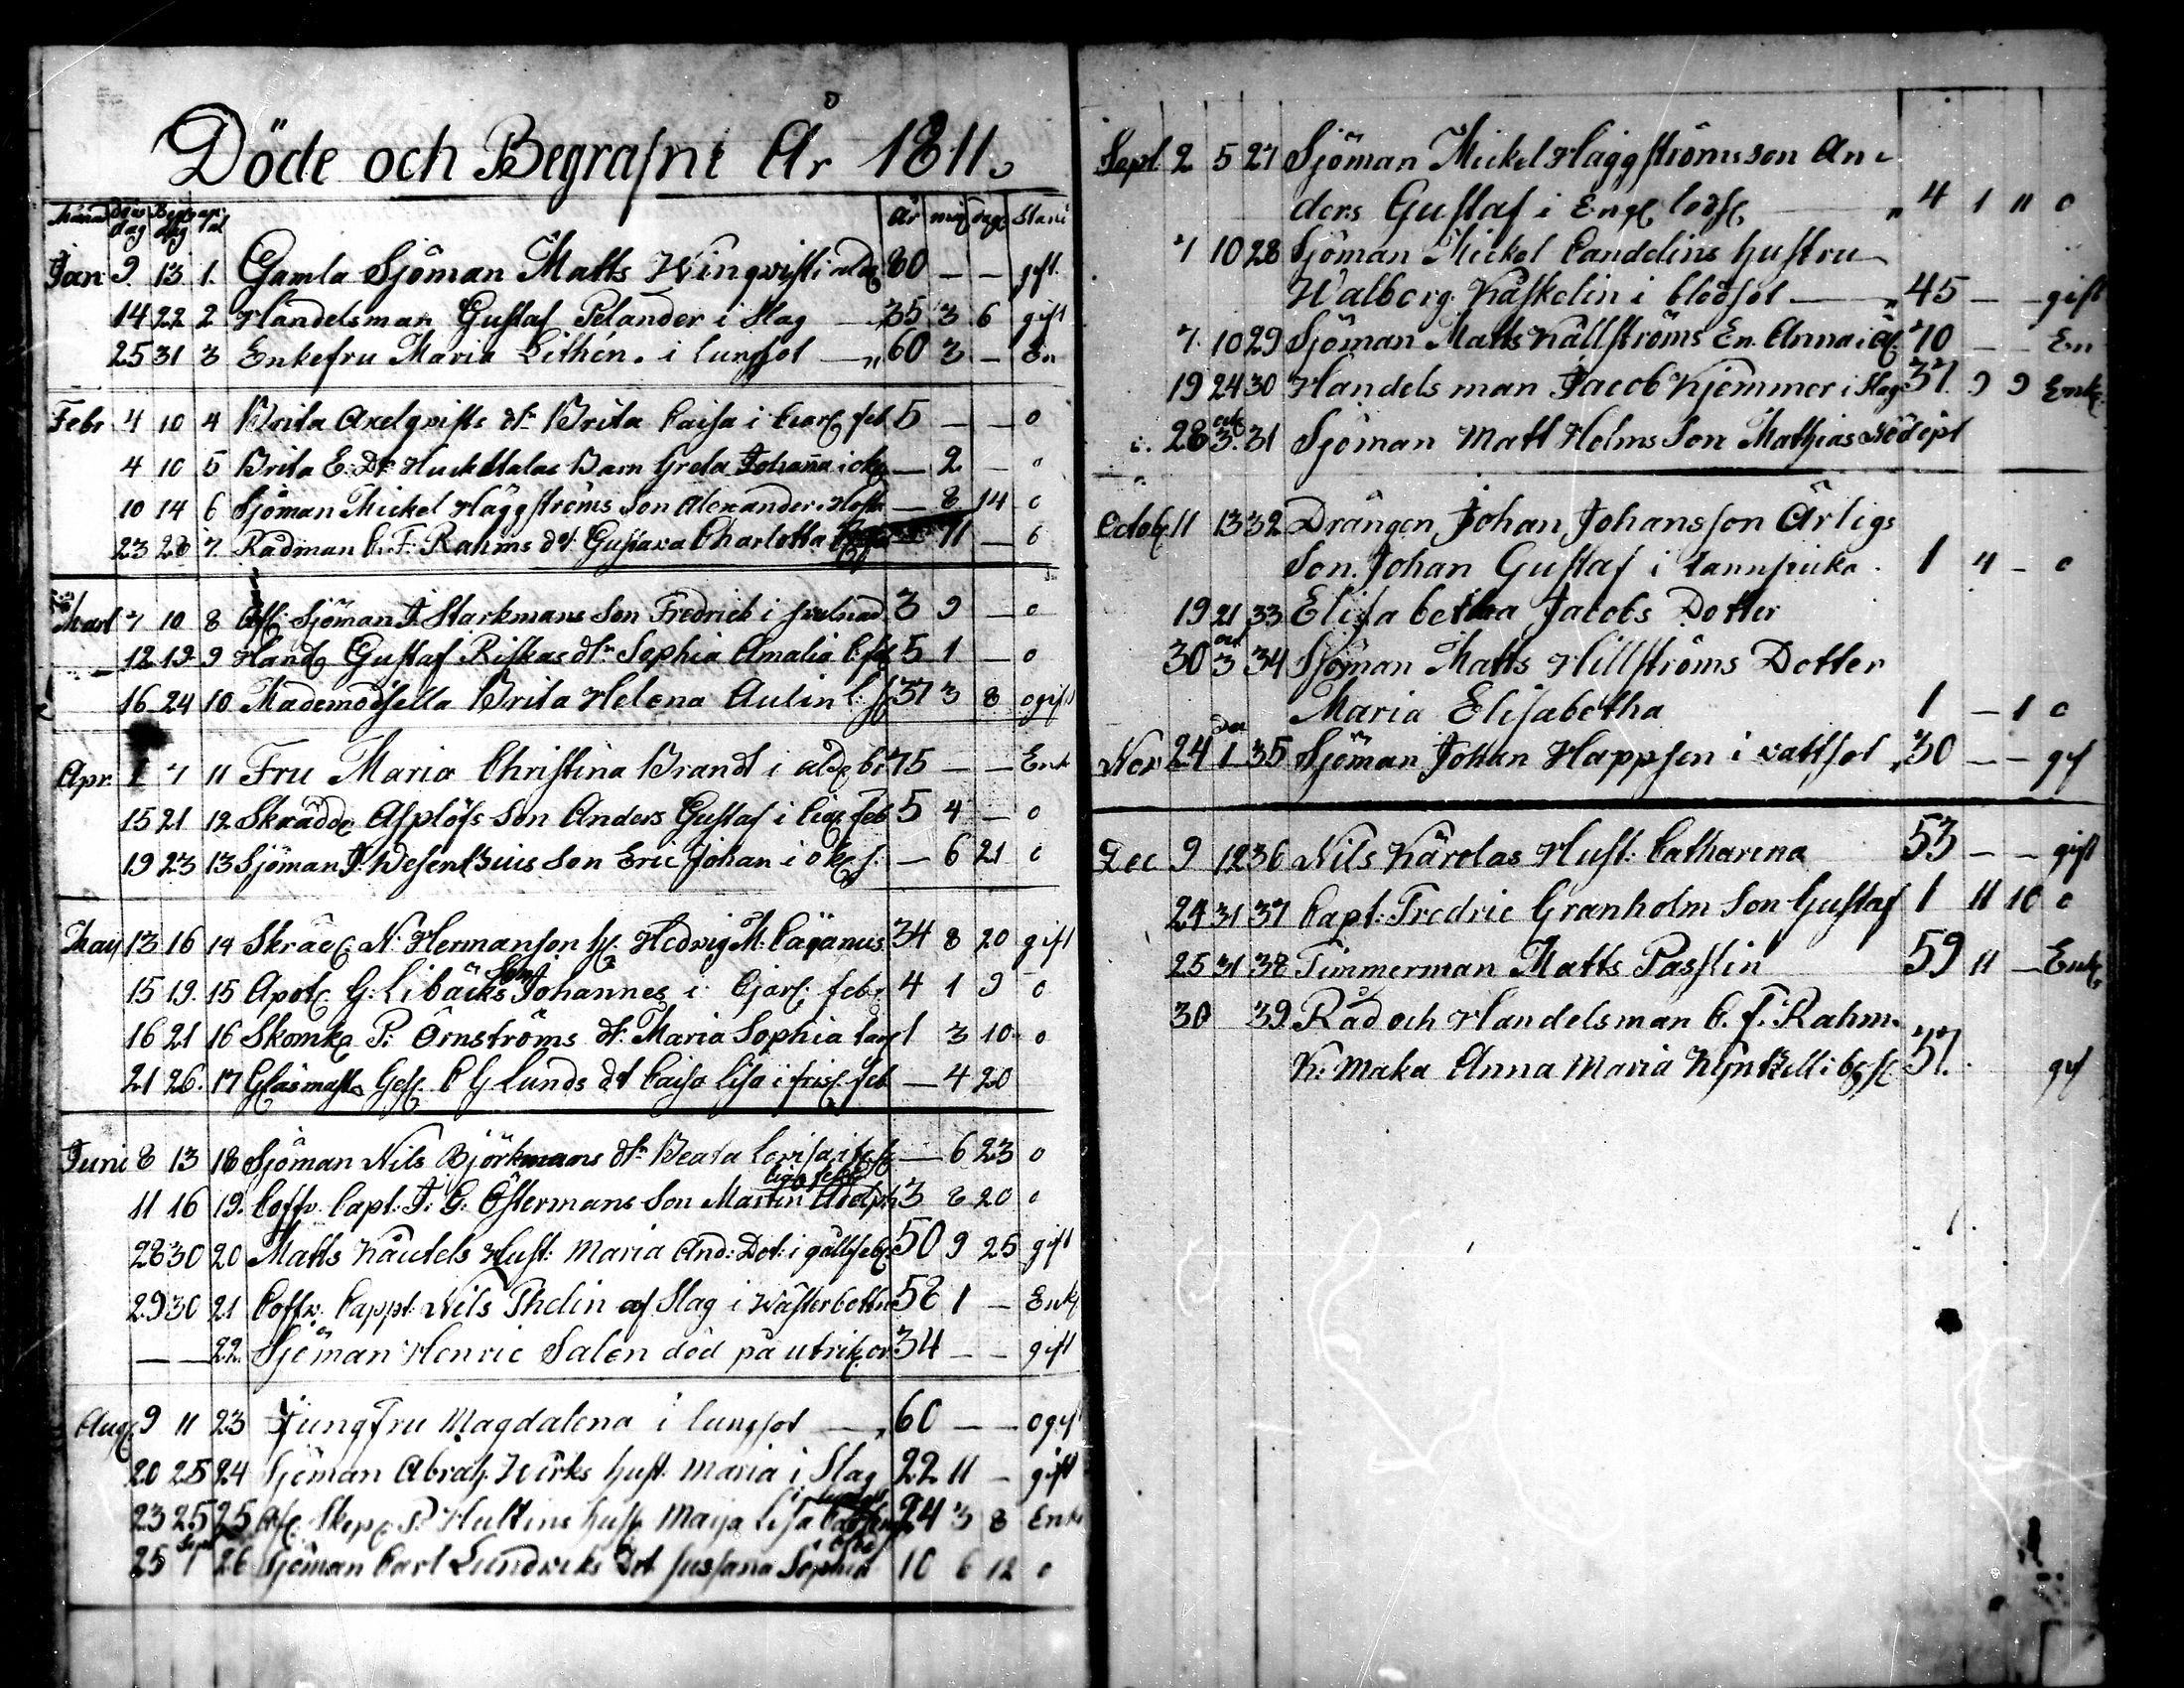 Döde och Begrafne År 1811.
Månad döds dag Begr: dag an: tal År må dag Stånd
Jan 9. 13. 1. Gamla Sjöman Matts Wingvist i åld 80 — — gift
14 22 2 Handelsman Gustaf Pelander i Slag — 35 3 6 gift
25 31 3 Enkefru Maria Lithén. i lungsot — 60 3 — En
Febr 4 10 4 Brita Axelqvists dr Brita Caisa i feb 5 — — o
4 10 5 Brita E: Dr Huckttalas Barn Greta Johaña i — 2 — o
10 14 6 Sjöman Mickel Häggströms Son Alexander i Host — 8 14 o
23 28 7. Rådman C. F. Rahms dt Gustava Charlotta 11 — o
Mart 7 10 8 Afl Sjöman J. Starkmans Son Fredrick i svulnad 3 9 — o
12 19 9 Hand Gustaf Riskas dr Sophia Amalia 5 1 — o
16 24 10 Mademoisella Brita Helena Aulin 37 3 8 ogift
Apr. 1 7 11 Fru Maria Christina Brandt i åld 75 — — Enk
15 21 12 Skrädd Asplöfs Son Anders Gustaf i feb 5 4 — o
19 23 13 Sjöman J. Wesentzius Son Eric Johan i — 6 21 o
May 13 16 14 Skräd N: Hermanson H Hedvig M. Cajanus 34 8 20 gift
15 19. 15 Apot G: Libäcks Son Johannes i feb 4 1 9 o
16 21 16 Skomk P: Örnströms dt: Maria Sophia 1 3 10 o
21 26. 17 Glasmast Ges C G Lunds dt Caisa Lisa i fris feb — 4 20
Juni 8 13 18 Sjöman Nils Björkmans dr Beata Lovisa i — 6 23 o
11 16 19. Coffv. Capt: J: G: Östermans Son Martin Adolph 3 8 20 o
28 30 20 Matts Käutels Hust: Maria And: Dot: i gallfeb 50 9 25 gift
29 30 21 Coffv. Cappt: Nils Thelin af Slag i Wästerbottn 58 1 — Enk
— — 22. Sjöman Henric Salen död på utrik or 34 — — gift
Aug 9 11 23 Jungfru Magdalena i lungsot — 60 — — ogift
20 25 24 Sjöman Abrah. Wirks hust. Maria i Slag 22 11 — gift
23 25 25 Afl Skep P. Hultins hust Maija Lisa 24 3 8 Enk
25 Sept 1 26 Sjöman Carl Lundviks Dot Sussana Sophia 10 6 12 o
Sept 2 5 27 Sjöman Mickel Häggströms son An-
ders Gustaf i Eng — " 4 1 11 o
7 10 28 Sjöman Mickel Candelins hustru
Walborg Kaskelin i blodsot — " 45 — — gift
7. 10 29 Sjöman Matts Källströms En. Anna i Ål 70 — — En
19 24 30 Handelsman Jacob Kjemmer i Slag 37. 9 9 Enk
28 oct 3. 31 Sjöman Matt Holms Son Mathias Nöddöpt
Octob 11 13 32 Drängen Johan Johansson Ärligs
Son. Johan Gustaf i tannsprickn. 1 4 — o
19 21 33 Elisabetha Jacobs Dotter
30 3 34 Sjöman Matts Hillströms Dotter
Maria Elisabetha 1 — 1 o
Nov 24 Dec 1 35 Sjöman Johan Happsen i vattsot " 30 — — gif
Dec 9 12 36 Nils Kärolas Hust: Catharina 53 — — gift
24 31 37 Capt: Fredric Granholm Son Gustaf 1 11 10 o
25 31 38 Timmerman Matts Passlin 59 11 — Enk
30 39. Råd och Handelsman C. F: Rahm.
K: Maka Anna Maria Kyntzell i 57. gif